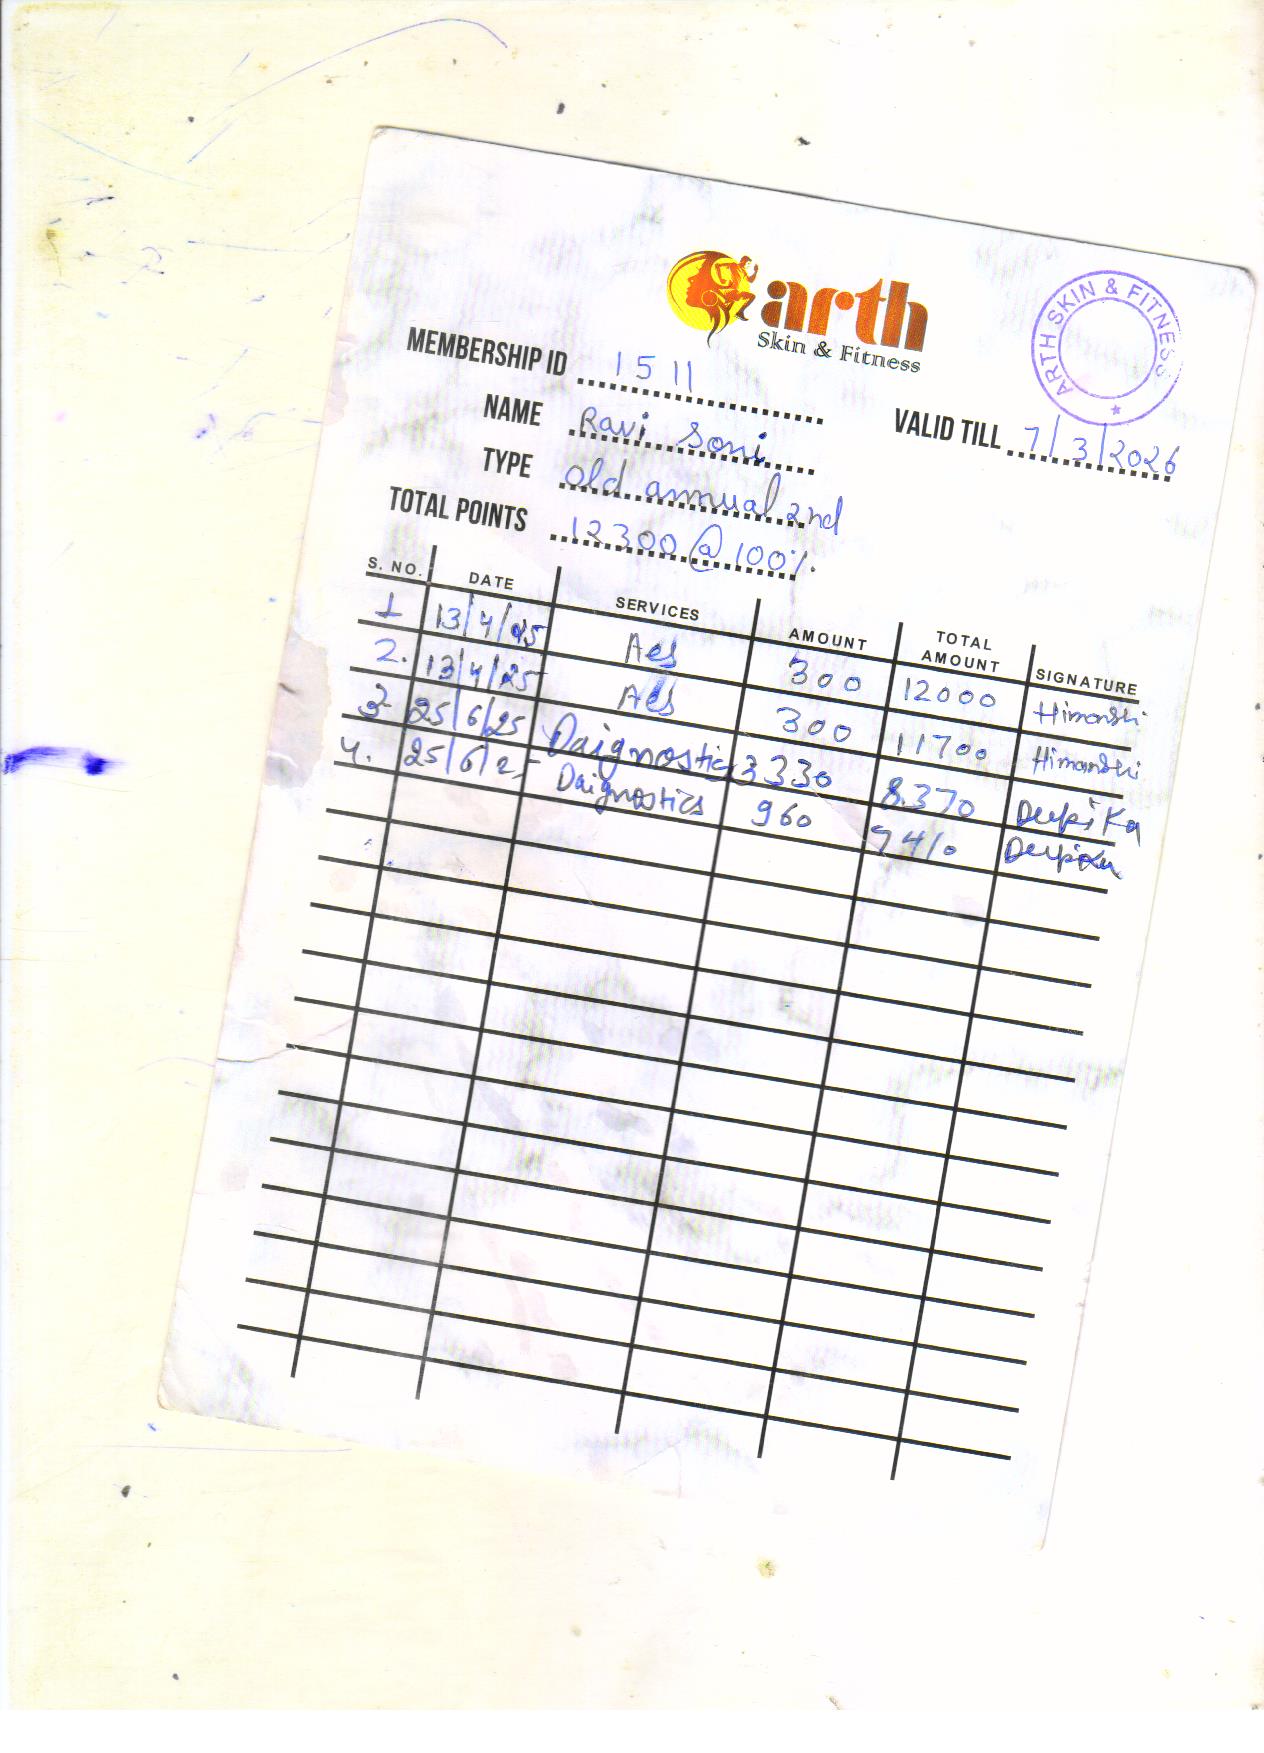 arth
Skin & Fitness
ARTH SKIN & FITNESS
MEMBERSHIP ID 1511
VALID TILL 7/3/2026
NAME Ravi Soni
TYPE old annual 2nd
TOTAL POINTS 12300 @ 100%.
S. NO. DATE SERVICES AMOUNT TOTAL AMOUNT SIGNATURE
1 13/4/25 Aes 300 12000 Himanshi
2. 13/4/25 Aes 300 11700 Himanshi
3 25/6/25 Daignostic 3330 8370 Deepika
4. 25/6/25 Daignostics 960 7410 Deepika